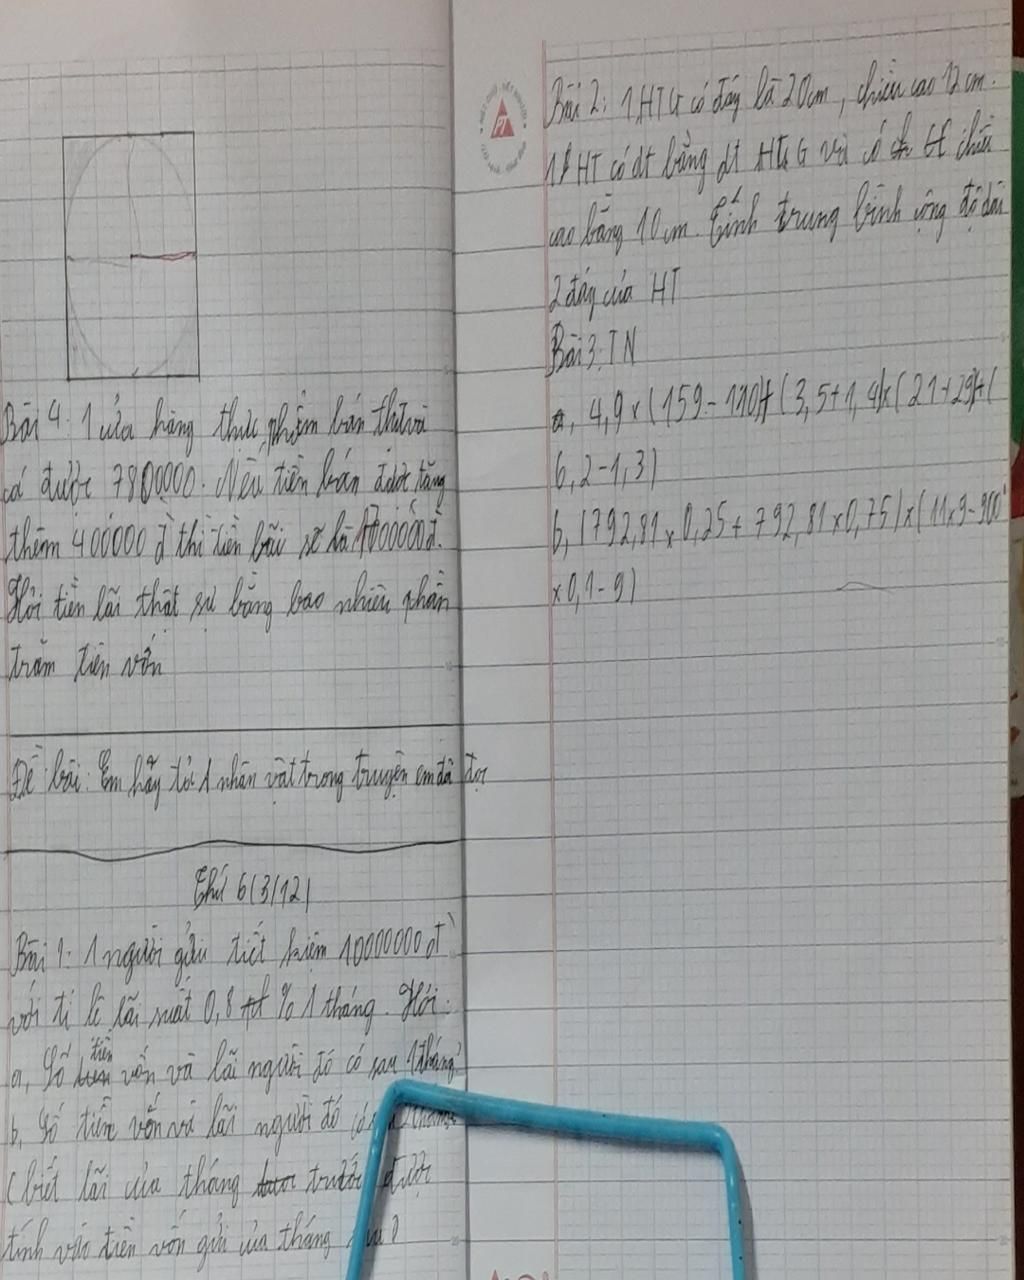 Bài 4: 1 cửa hàng thực phẩm bán thịt và
cá được 7800000. Nếu tiền bán được tăng
thêm 400000 đ thì tiền lãi sẽ là 1700000đ.
Hỏi tiền lãi thật sự bằng bao nhiêu phần
trăm tiền vốn
Đề bài: Em hãy tả 1 nhân vật trong truyện em đã đọc
Thứ 6(3/12)
Bài 1: 1 người gửi tiết kiệm 10000000 đ
với tỉ lệ lãi suất 0,8 % 1 tháng. Hỏi:
a, Số tiền vốn và lãi người đó có sau 1 tháng?
b, Số tiền vốn và lãi người đó có 2 tháng
(biết lãi của tháng trước được
tính vào tiền vốn gửi của tháng sau)
Bài 2: 1 HTG có đáy là 20cm, chiều cao 12cm.
1 HT có dt bằng dt HTG và có chiều
cao bằng 10cm. Tính trung bình cộng độ dài
2 đáy của HT
Bài 3: TN
a, 4,9 x (159 - 110) + (3,5 + 1,4) x (21 + 29) + (
6,2 - 1,3)
b, (792,81 x 0,25 + 792,81 x 0,75) x (11 x 9 - 900
x 0,1 - 9)